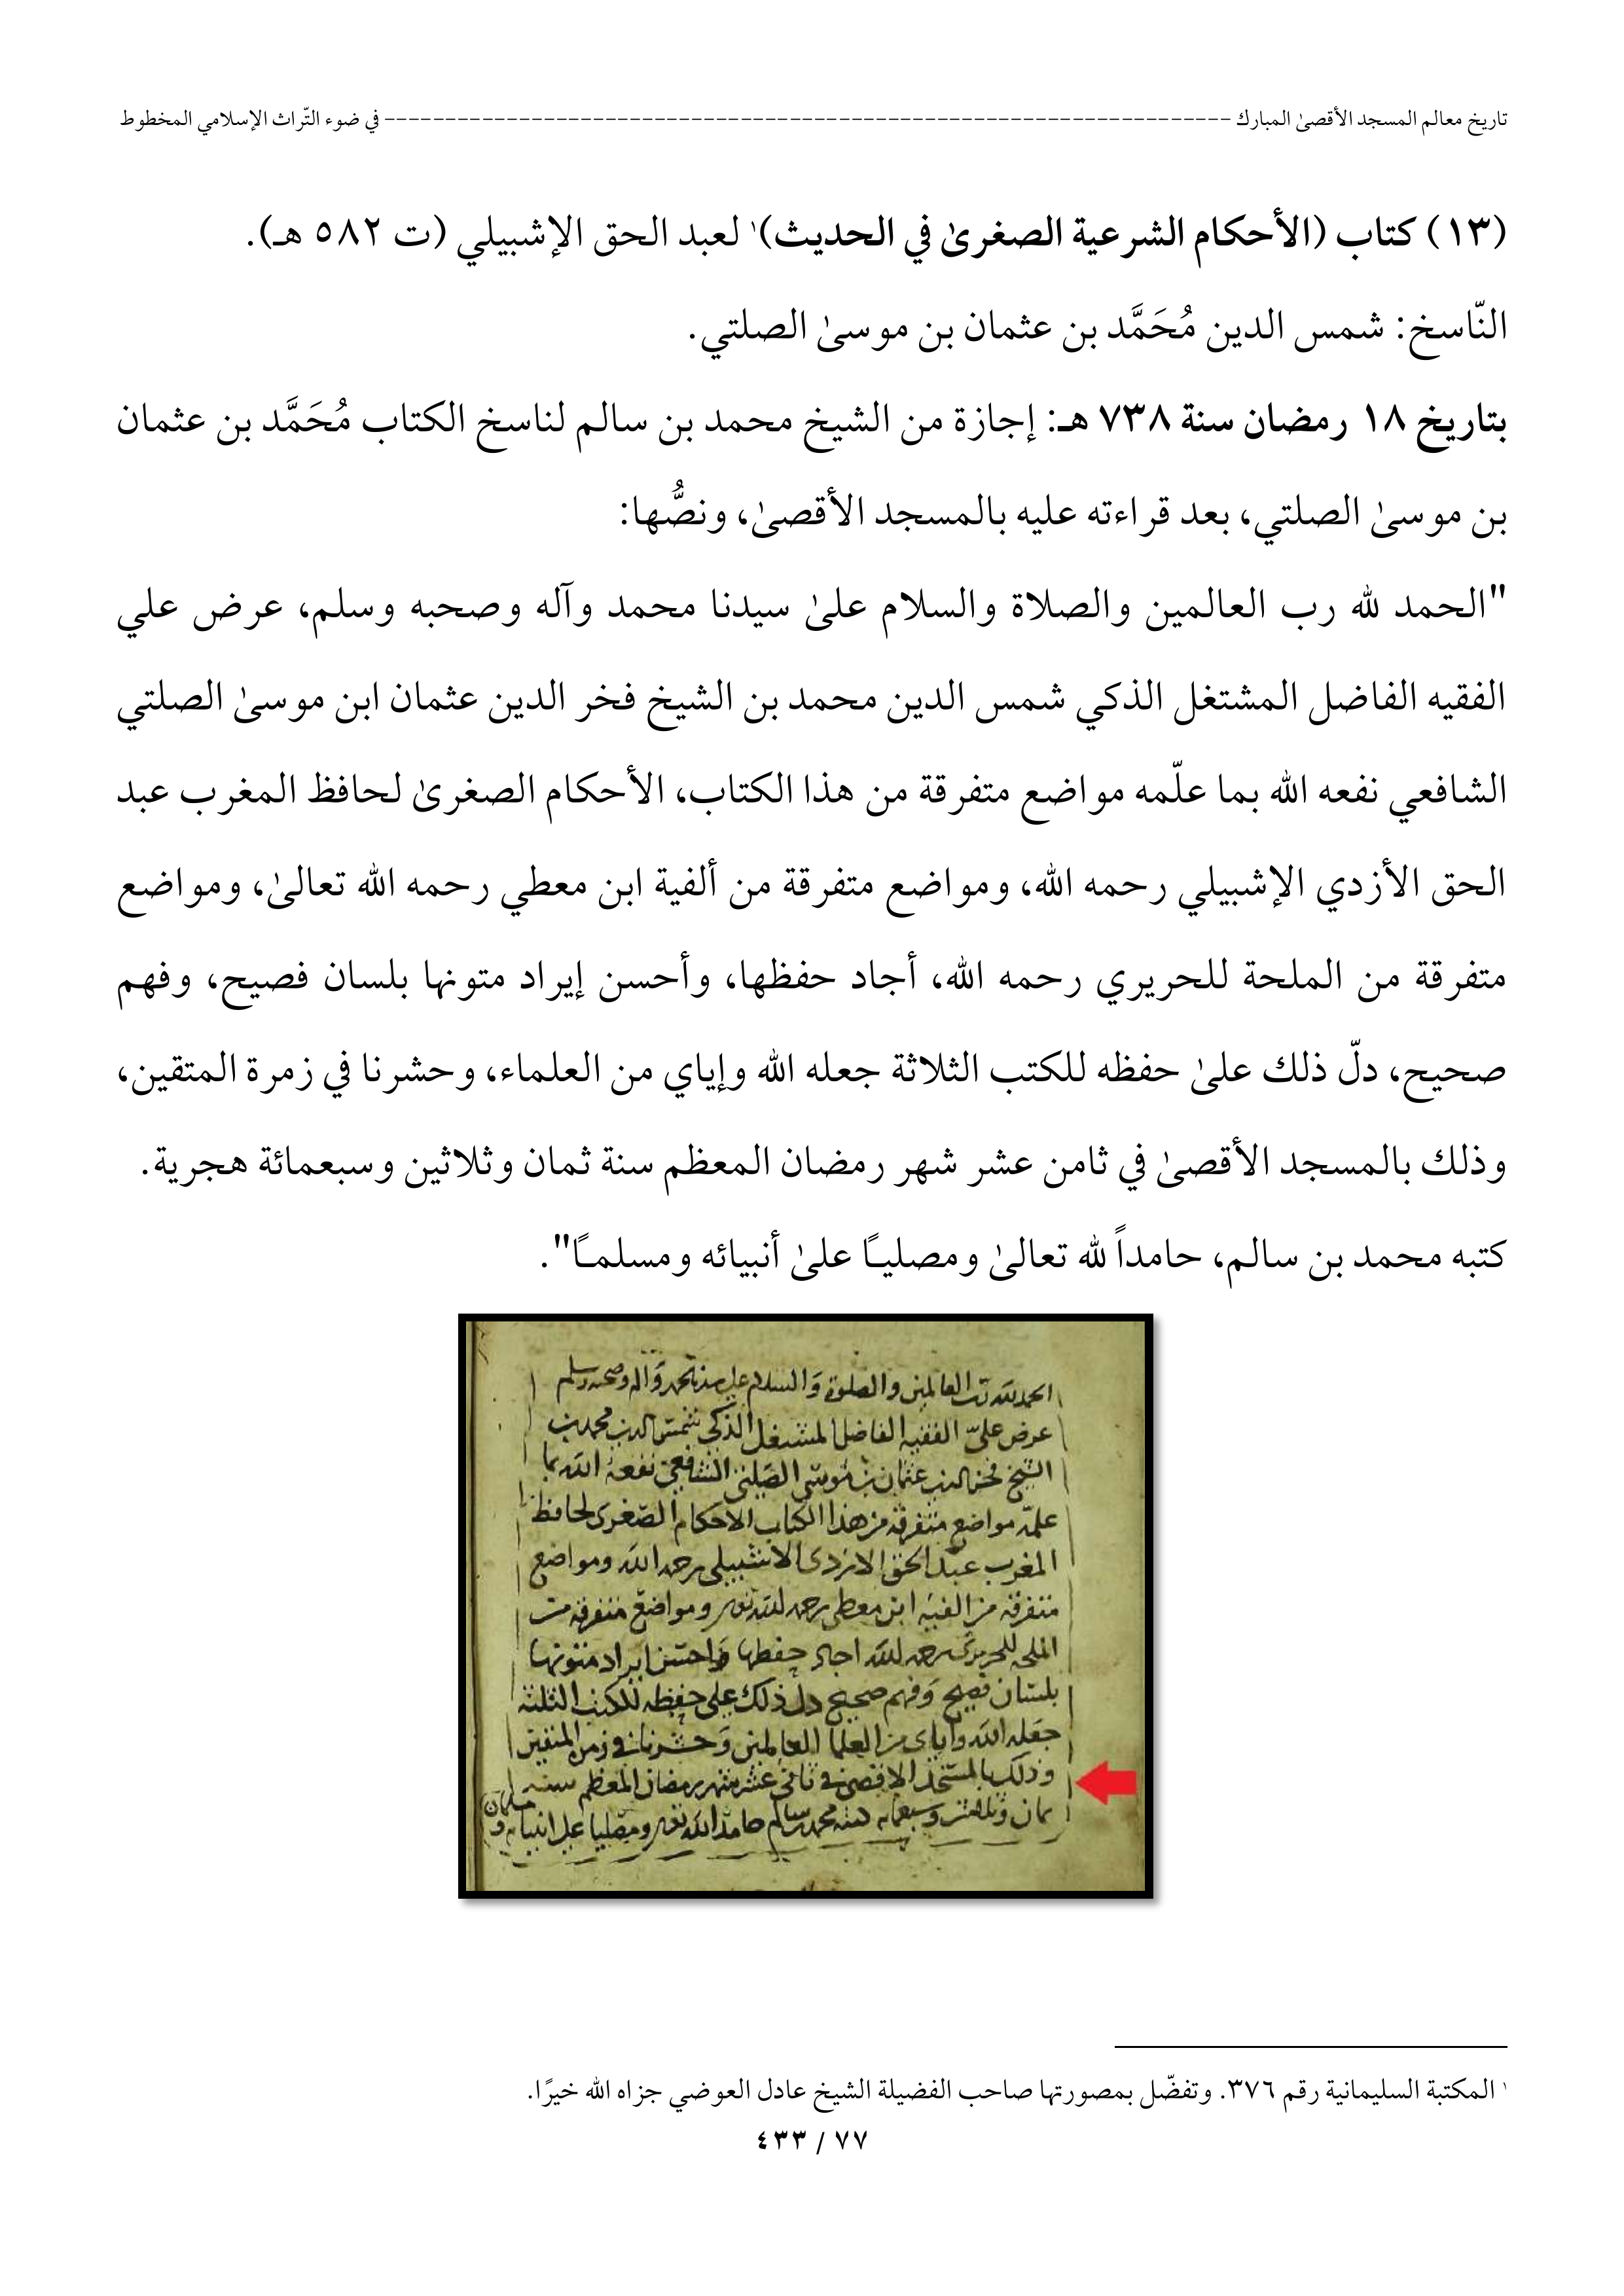 تاريخ معالم المسجد الأقصىٰ المبارك ---------------------------------------------------------------------- في ضوء التّراث الإسلامي المخطوط
(١٣) كتاب (الأحكام الشرعية الصغرىٰ في الحديث)١ لعبد الحق الإشبيلي (ت ٥٨٢ هـ).
النّاسخ: شمس الدين مُحَمَّد بن عثمان بن موسىٰ الصلتي.
بتاريخ ١٨ رمضان سنة ٧٣٨ هـ: إجازة من الشيخ محمد بن سالم لناسخ الكتاب مُحَمَّد بن عثمان
بن موسىٰ الصلتي، بعد قراءته عليه بالمسجد الأقصىٰ، ونصُّها:
"الحمد لله رب العالمين والصلاة والسلام علىٰ سيدنا محمد وآله وصحبه وسلم، عرض علي
الفقيه الفاضل المشتغل الذكي شمس الدين محمد بن الشيخ فخر الدين عثمان ابن موسىٰ الصلتي
الشافعي نفعه الله بما علّمه مواضع متفرقة من هذا الكتاب، الأحكام الصغرىٰ لحافظ المغرب عبد
الحق الأزدي الإشبيلي رحمه الله، ومواضع متفرقة من ألفية ابن معطي رحمه الله تعالىٰ، ومواضع
متفرقة من الملحة للحريري رحمه الله، أجاد حفظها، وأحسن إيراد متونها بلسان فصيح، وفهم
صحيح، دلّ ذلك علىٰ حفظه للكتب الثلاثة جعله الله وإياي من العلماء، وحشرنا في زمرة المتقين،
وذلك بالمسجد الأقصىٰ في ثامن عشر شهر رمضان المعظم سنة ثمان وثلاثين وسبعمائة هجرية.
كتبه محمد بن سالم، حامداً لله تعالىٰ ومصليًا علىٰ أنبيائه ومسلمًا".
الحمد لله رب العالمين والصلوة والسلام على سيدنا محمد وآله وصحبه وسلم
عرض عليّ الفقيه الفاضل المشتغل الذكي شمس الدين محمد بن
الشيخ فخر الدين عثمان بن موسى الصلتي الشافعي نفعه الله بما
علمه مواضع متفرقة من هذا الكتاب الاحكام الصغرى لحافظ
المغرب عبد الحق الازدي الاشبيلي رحمه الله ومواضع
متفرقة من الفية ابن معطي رحمه الله تعالى ومواضع متفرقة من
الملحة للحريري رحمه الله اجاد حفظها واحسن ايراد متونها
بلسان فصيح وفهم صحيح دل ذلك على حفظه للكتب الثلثة
جعله الله واياي من العلما العالمين وحشرنا في زمرة المتقين
وذلك بالمسجد الاقصى في ثاني عشر شهر رمضان المعظم سنة
ثمان وثلاثين وسبعماية كتبه محمد بن سالم حامدا لله تعالى ومصليا على انبيايه و
١ المكتبة السليمانية رقم ٣٧٦. وتفضّل بمصورتها صاحب الفضيلة الشيخ عادل العوضي جزاه الله خيرًا.
٧٧ / ٤٣٣